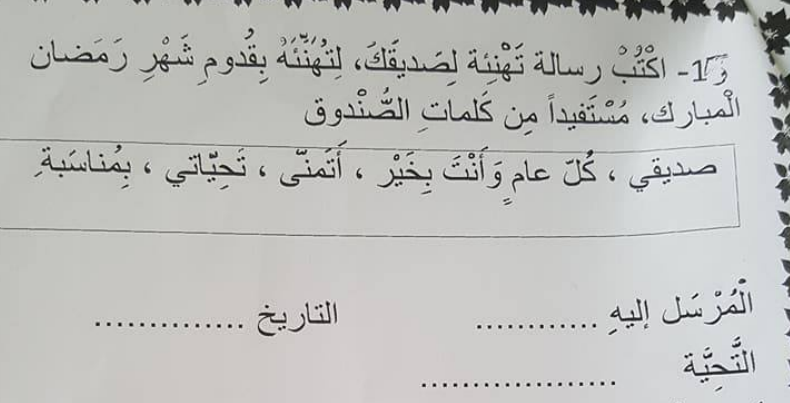 1- اكْتُبْ رسالة تَهْنِئة لِصَديقَكَ، لِتُهَنِّئَهُ بِقُدومِ شَهْرِ رَمَضان
الْمبارك، مُسْتَفيداً مِن كَلمات الصُّنْدوق
صديقي ، كُلّ عام وَأَنْتَ بِخَيْر ، أَتَمنّى ، تَحِيّاتي ، بِمُناسَبة
الْمُرْسَل إليهِ ............ التاريخ ..............
التَّحِيَّة ..................